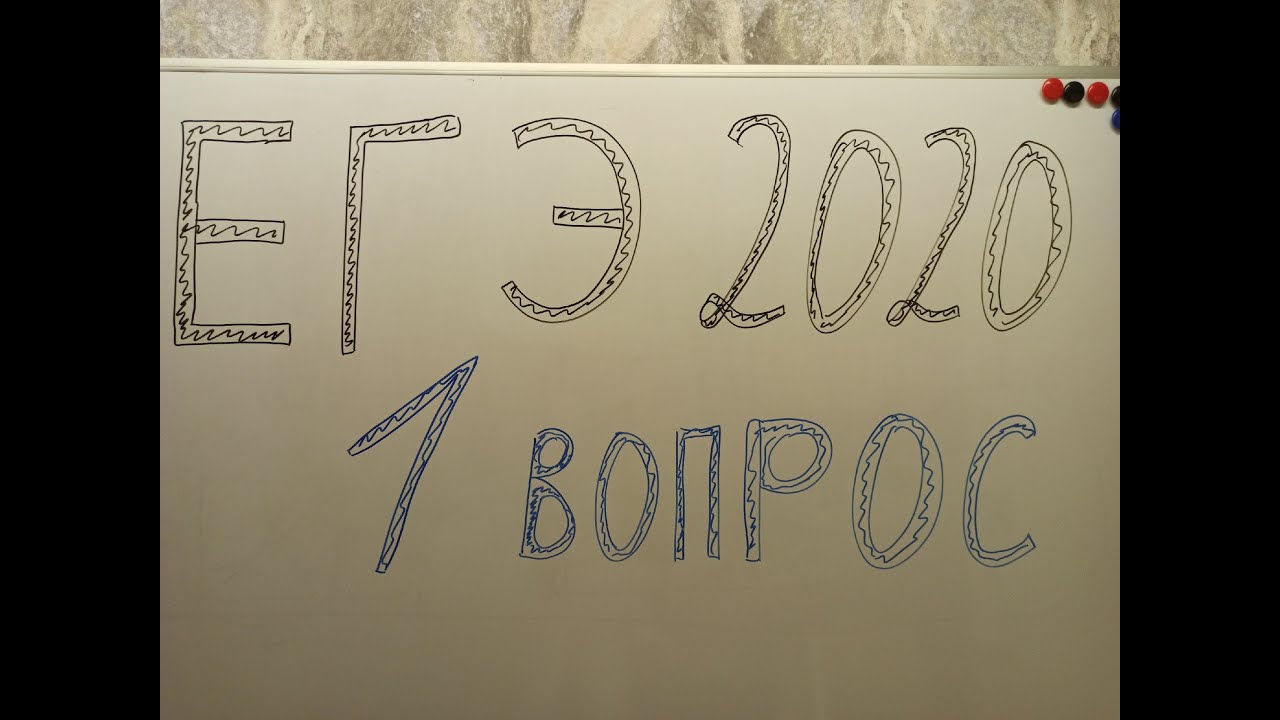 ЕГЭ 2020
1 ВОПРОС